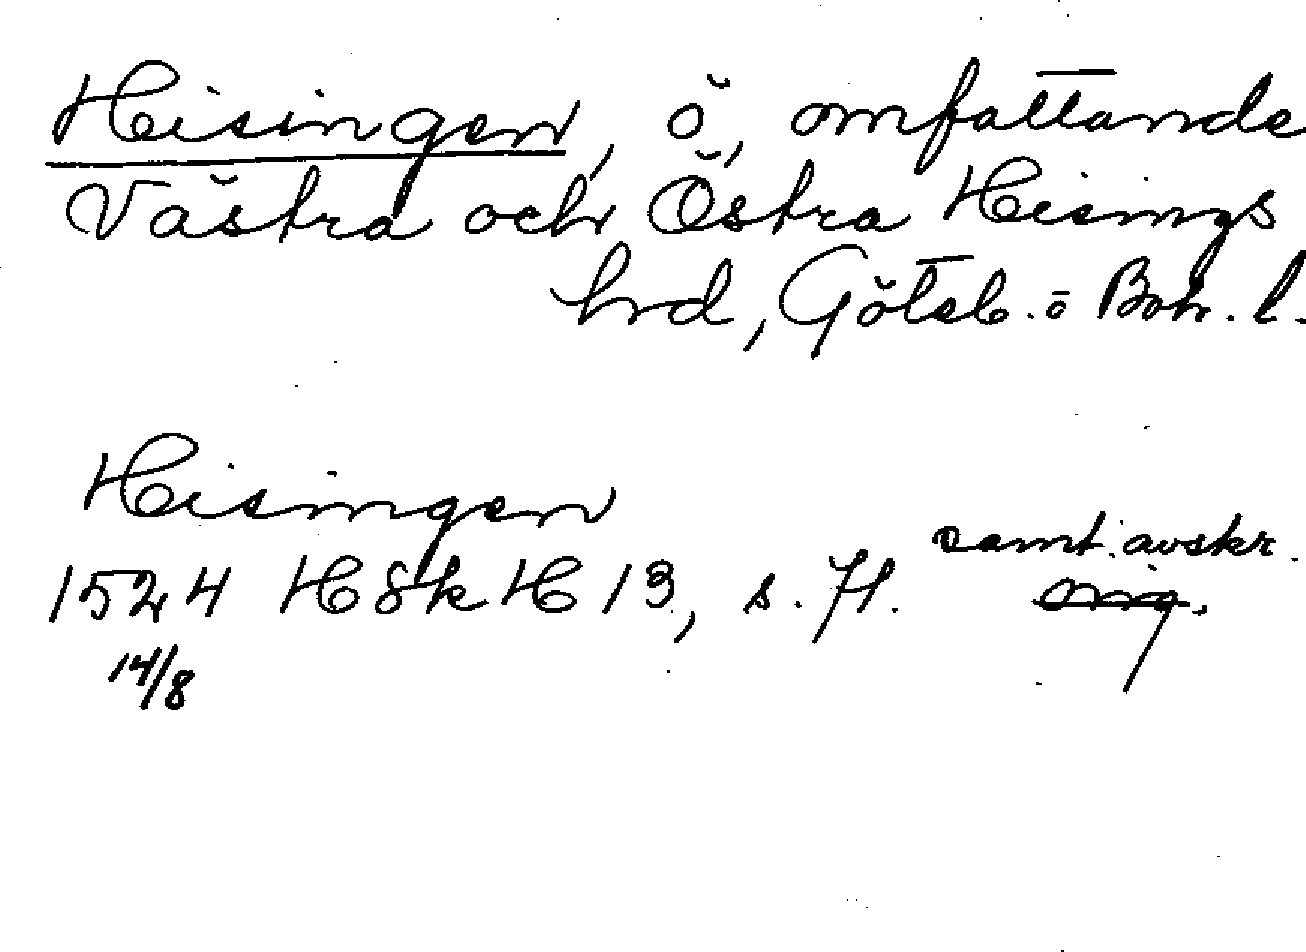 Hisingen, ö, omfattande
Västra och Östra Hisings
hrd, Göteb. o Boh. l.
Hisingen
samt. avskr.
1524 HSkH 13, s. 71. ~~orig.~~
14/8